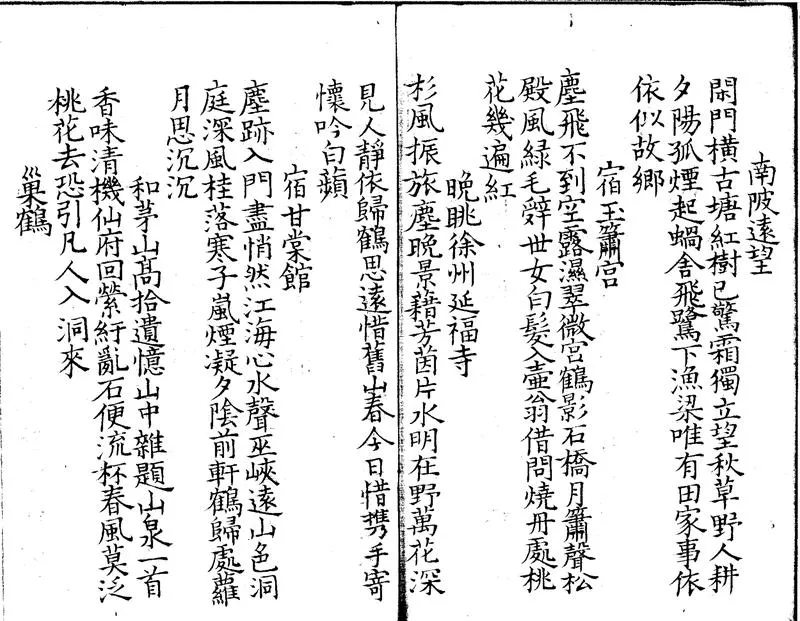 南陂遠望
閑門橫古塘紅樹已驚霜獨立望秋草野人耕
夕陽孤煙起蝸舍飛鷺下漁梁唯有田家事依
依似故鄉
宿玉簫宮
塵飛不到空露濕翠微宮鶴影石橋月簫聲松
殿風緑毛辭世女白髮入壷翁借問燒丹處桃
花幾遍紅
晚眺徐州延福寺
杉風振旅塵晚景藉芳茵片水明在野萬花深
見人靜依歸鶴思遠惜舊山春今日惜携手寄
懷吟白蘋
宿甘棠館
塵跡入門盡悄然江海心水聲巫峽遠山色洞
庭深風桂落寒子嵐煙凝夕陰前軒鶴歸處蘿
月思沉沉
和茅山高拾遺憶山中雜題山泉一首
香味清機仙府回縈紆亂石便流杯春風莫泛
桃花去恐引凡人入洞來
巢鶴